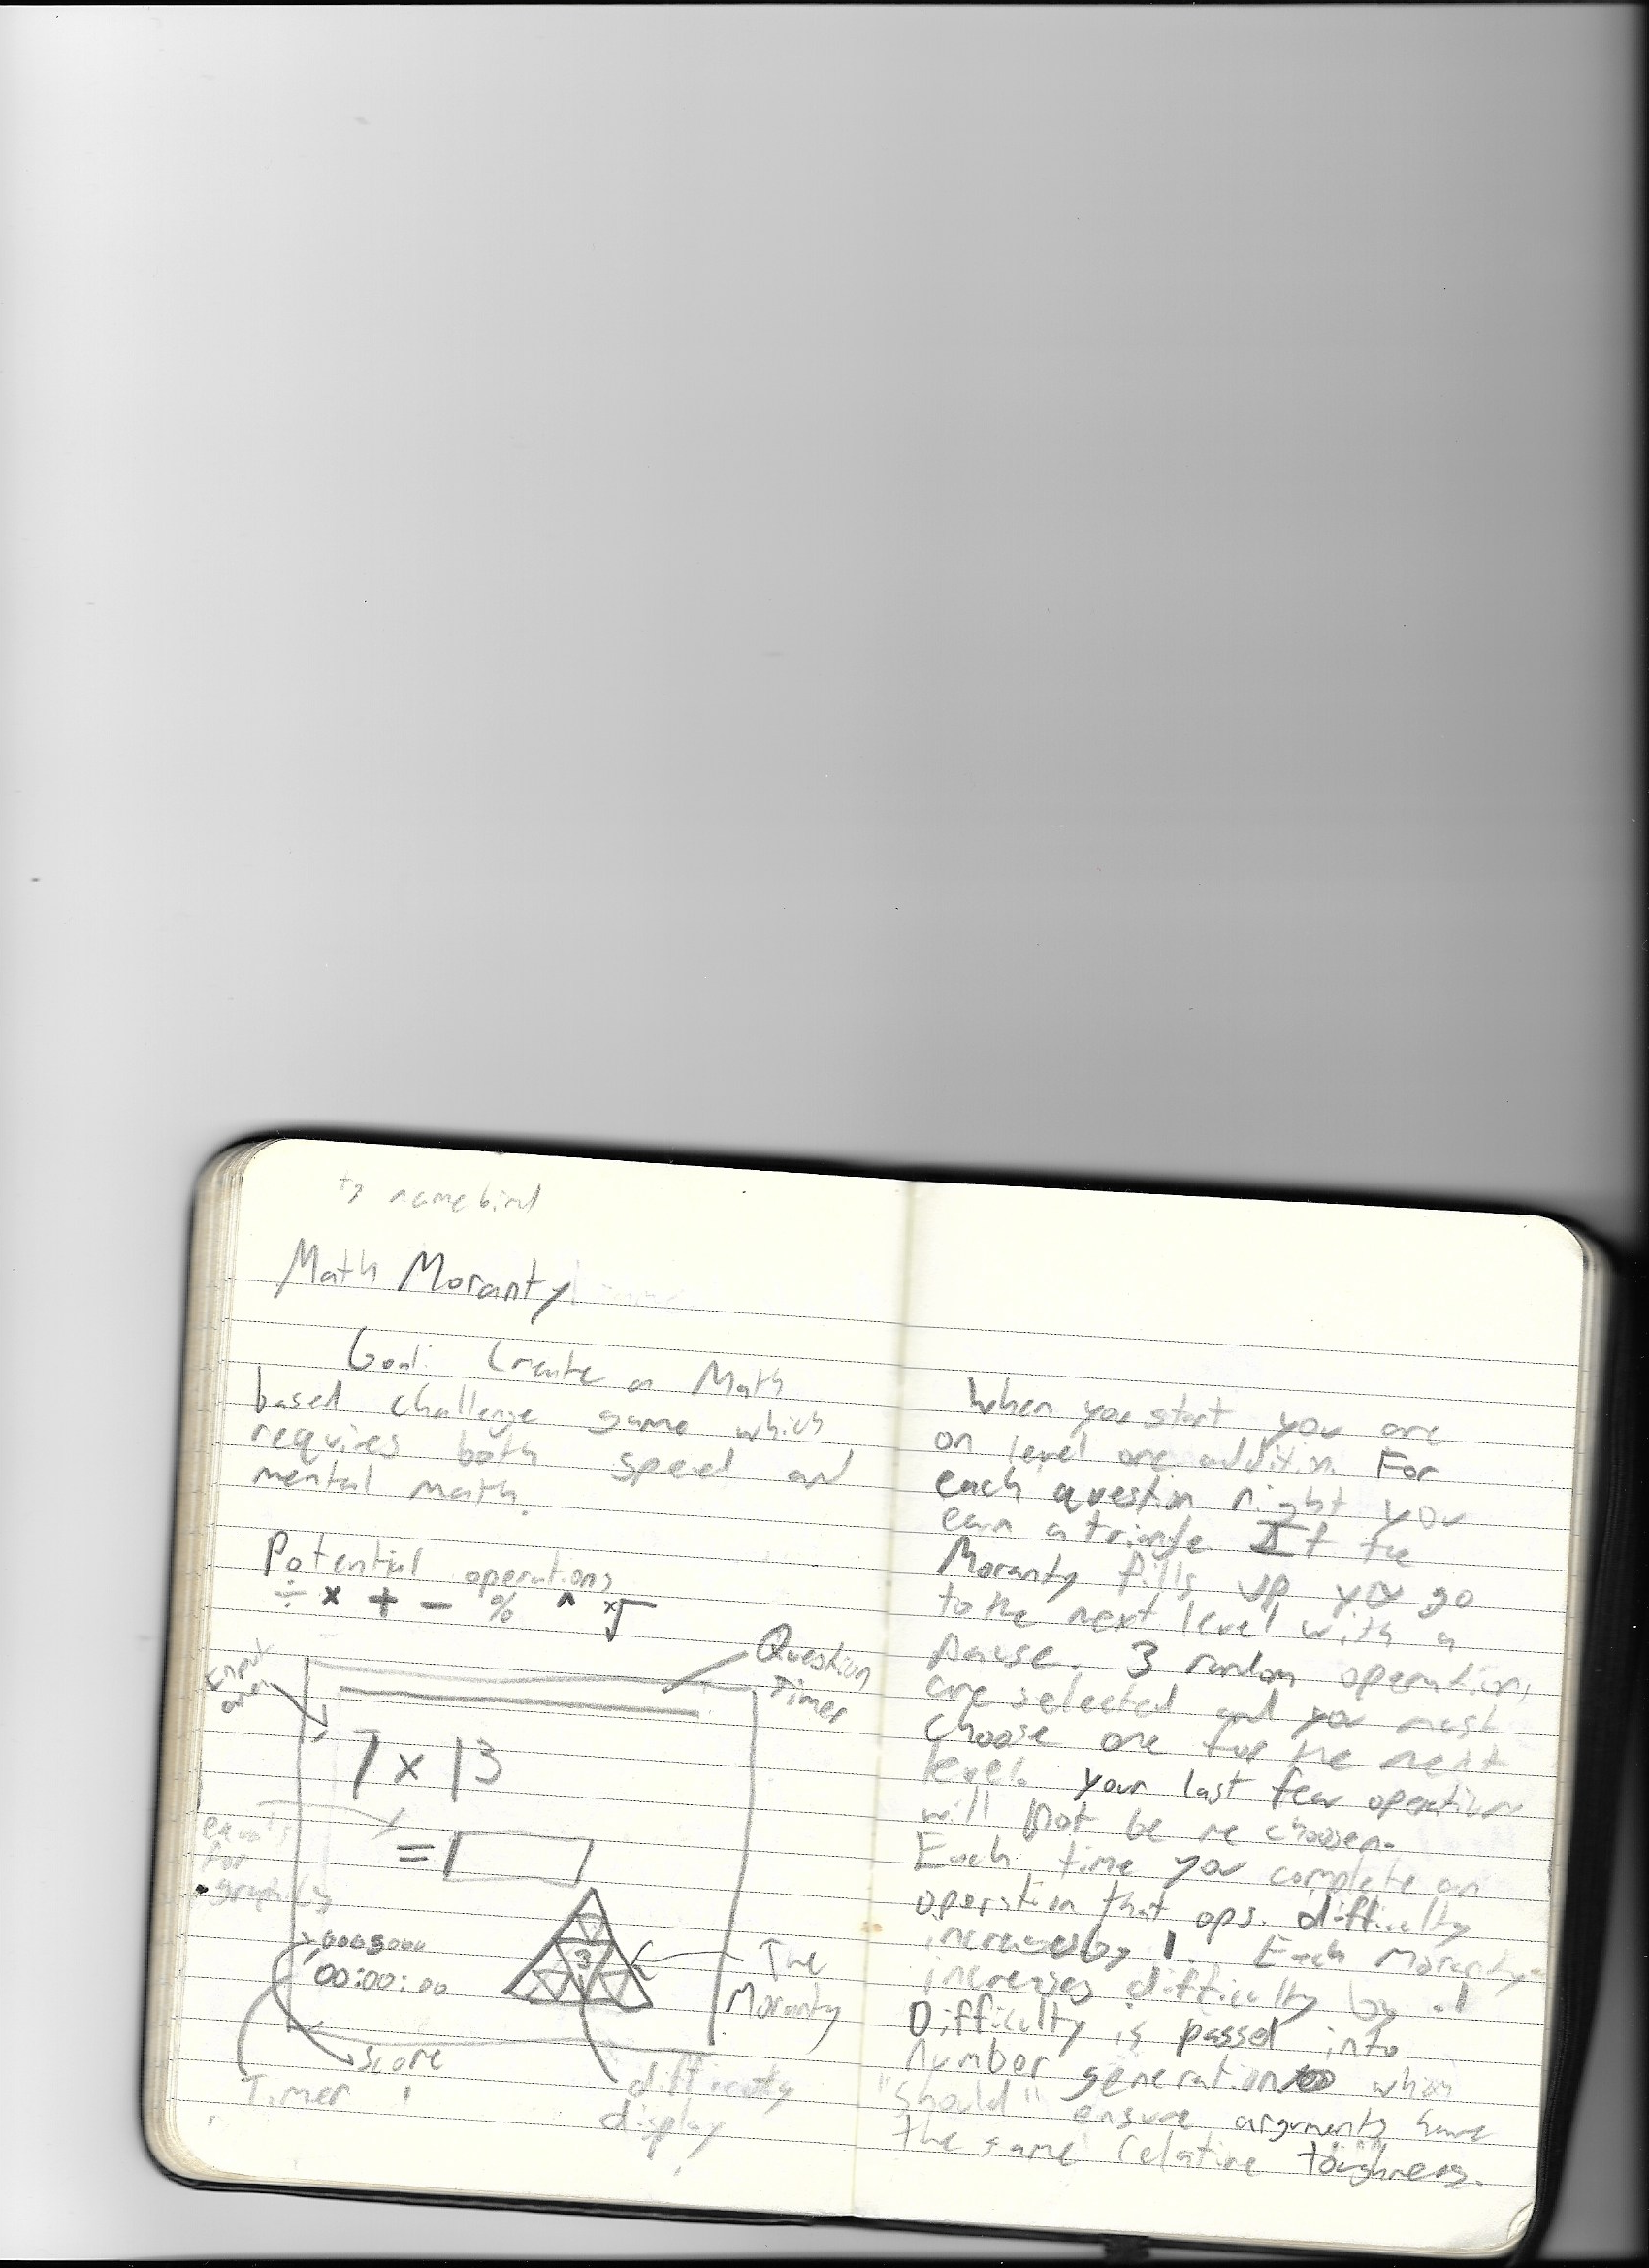 namebind
Math Moranty
Goal: Create a Math
based challenge game which
requires both speed and
mental math.
Potential operations
÷ × + - % ^ ˣ√
Question
Timer
Input
area
7 × 13
equals
for
=
0003000
00:00:00
3
The
Moranty
Score
Timer
difficulty
display
When you start you are
on level one addition. For
each question right you
earn a triangle If the
Moranty fills up you go
to the next level with a
pause. 3 random operations
are selected and you must
choose one for the next
level. your last few operation
will not be re choosen.
Each time you complete an
operation that ops. difficulty
increases by 1. Each Moranty
increases difficulty by .1
Difficulty is passed into
number generation which
"should" ensure arguments have
the same relative toughness.